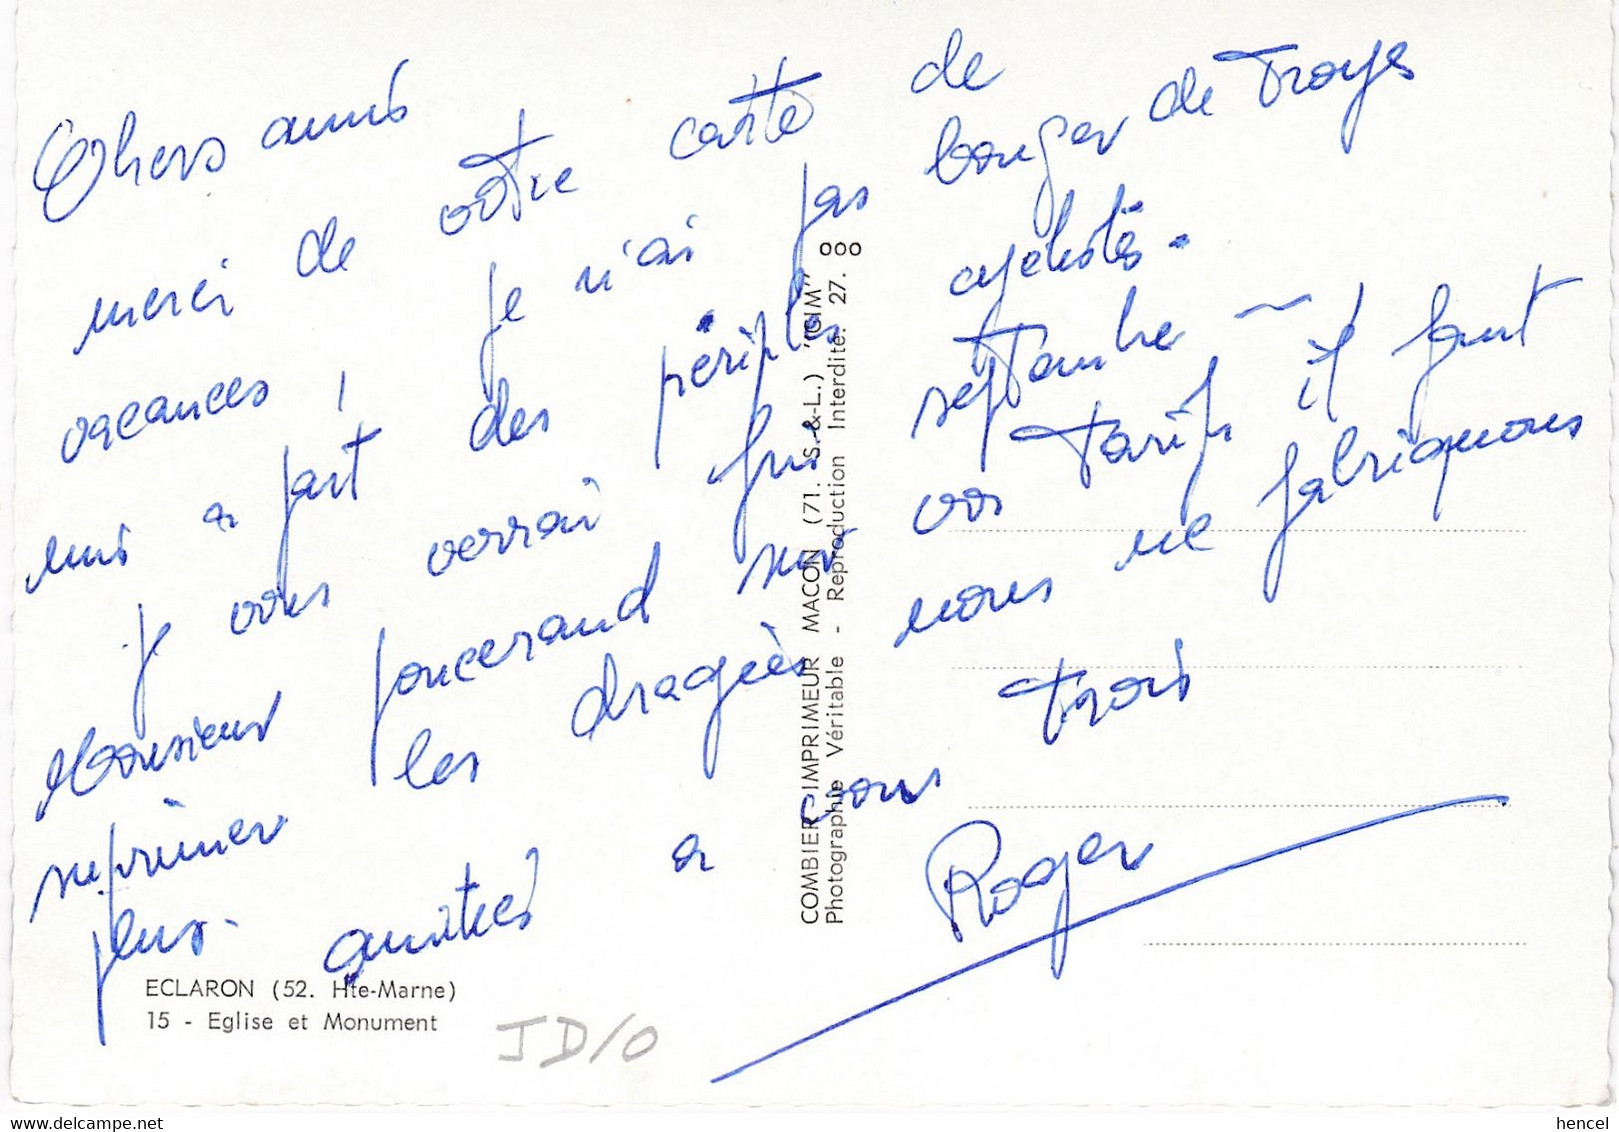 Chers amis
merci de votre carte de
vacances, je n'ai pas bouger de Troyes
mis a part des périples cyclistes.
je vous verrai fin septembre —
Monsieur poncerand sur vos tarifs il faut
suprimer les dragées nous ne fabriquons
plus. amitiés a vous trois
Roger
COMBIER IMPRIMEUR MACON (71. S.-&-L.) "CIM"
Photographie Véritable - Reproduction Interdite. 27. 000
ECLARON (52. Hte-Marne)
15 - Eglise et Monument
JD/0
hencel